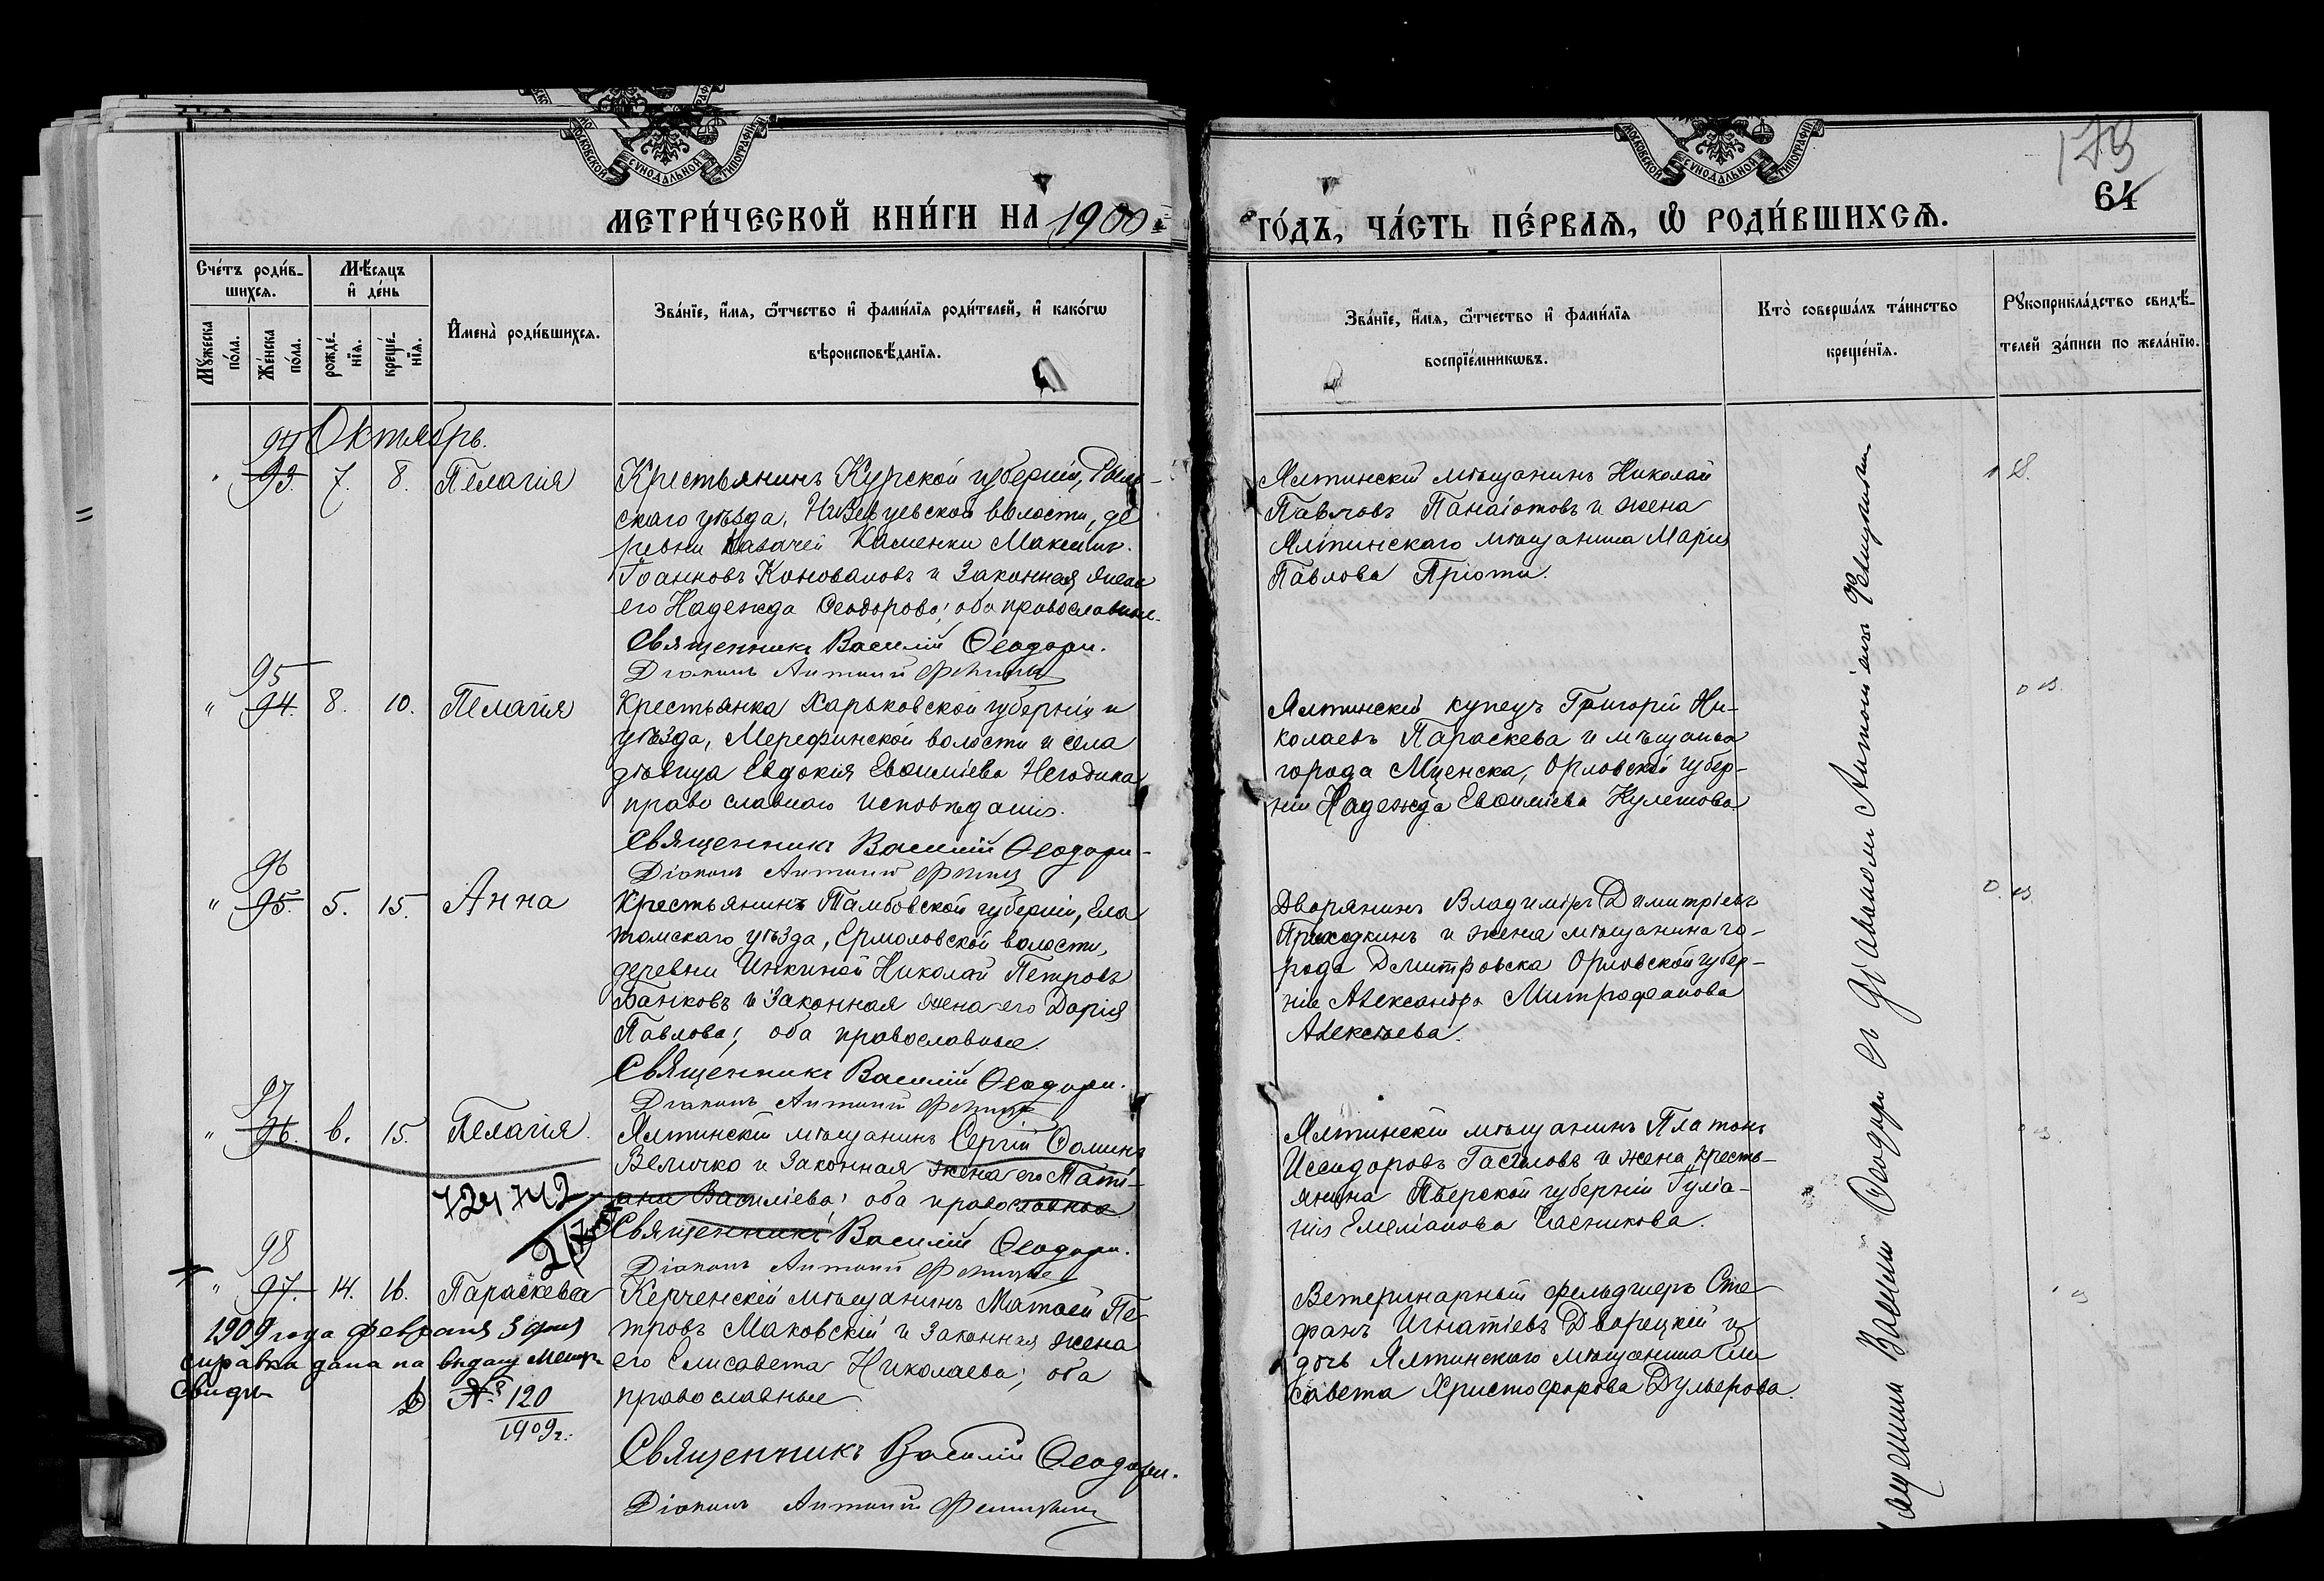 МОСКОВСКОЙ СѴНОДАЛЬНОЙ ТИПОГРАФІИ
МОСКОВСКОЙ СѴНОДАЛЬНОЙ ТИПОГРАФІИ
179
64
МЕТРИ́ЧЕСКОЙ КНИ́ГИ НА 1900
ГО́ДЪ, ЧА́СТЬ ПЕ́РВАѦ, Ѡ РОДИ́ВШИХСѦ.
Сче́тъ роди́в-
шихсѧ.
Мѣ́сѧцъ
и҆ де́нь
Мꙋ́жеска
по́ла.
Же́нска
по́ла.
рожде́-
нїѧ.
креще́-
нїѧ.
И҆мена̀ роди́вшихсѧ.
Зва́нїе, и҆́мѧ, ѻ҆́тчество и҆ фами́лїѧ роди́телей, и҆ како́гѡ
вѣроисповѣ́данїѧ.
Зва́нїе, и҆́мѧ, ѻ҆́тчество и҆ фами́лїѧ
воспрїе́мникѡвъ.
Кто̀ соверша́лъ та́инство
креще́нїѧ.
Рꙋкоприкла́дство свидѣ́-
телей за́писи по жела́нїю.
94 Октябрь.
93. 7. 8. Пелагія
Крестьянинъ Курской губерніи, Рыль-
скаго уѣзда, волости, де
ревни Казачей Каменки Максимъ
Іоанновъ Коноваловъ и законная жена
его Надежда Ѳеодорова; оба православные.
Священникъ Василій Ѳеодори.
Діаконъ Антоній
Ялтинскій мѣщанинъ Николай
Павловъ Панаіотовъ и жена
Ялтинскаго мѣщанина Марія
Павлова Пріоти.
95
" 94. 8. 10. Пелагія
Крестьянка Харьковской губерніи и
уѣзда, Мерефинской волости и села
дѣвица Евдокія Евѳиміева Негодина
православнаго исповѣданія.
Священникъ Василій Ѳеодори
Діаконъ Антоній
Ялтинскій купецъ Григорій Ни-
колаевъ Параскева и мѣщанка
города Мценска, Орловской губер-
ніи Надежда Евѳиміева Кулешова
96
" 95. 5. 15. Анна
Крестьянинъ Тамбовской губерніи, Ела
томскаго уѣзда, Ермоловской волости,
деревни Инкиной Николай Петровъ
Банковъ и законная жена его Дарія
Павлова; оба православные.
Священникъ Василій Ѳеодори.
Діаконъ Антоній
Дворянинъ Владиміръ Димитріевъ
Приходкинъ и жена мѣщанина го-
рода Дмитровска Орловской губер-
ніи Александра Митрофанова
Алексѣева.
97
" 96. 6. 15. Пелагія.
Ялтинскій мѣщанинъ Сергій Ѳоминъ
Величко и законная жена его Тати-
ана Василіева; оба православные
Священникъ Василій Ѳеодори.
Діаконъ Антоній
Ялтинскій мѣщанинъ Платонъ
Исидоровъ и жена кресть-
янина Тверской губерніи Гулiа-
нія Емеліанова Часникова.
98
" 97. 14. 16. Параскева
Керченскій мѣщанинъ Матѳей Пе-
тровъ Маковскій и законная жена
его Елисавета Николаева; оба
православные
Священникъ Василій Ѳеодори.
Діаконъ Антоній
Ветеринарный фельдшеръ Сте
фанъ Игнатіевъ Дворецкій и
дочь Ялтинскаго мѣщанина Ели
савета Христофорова Дульерова.
1909 года февраля 3 дня
справка дана на выдачу Метр.
Свидѣ
№ 120
1909 г.
Василій Ѳеодори съ діакономъ Антоніемъ